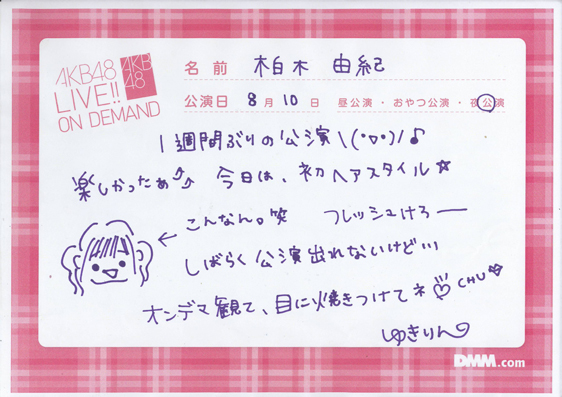 AKB48
LIVE!!
ON DEMAND
AKB
48
名前 柏木 由紀
公演日 8月10日 昼公演・おやつ公演・夜公演
1週間ぶりの公演\(・▽・)/♪
楽しかったぁ⤴⤴ 今日は、初ヘアスタイル☆
← こんなん。笑 フレッシュけろー
しばらく公演出れないけど…
オンデマ観て、目に焼きつけてネ♡CHU
ゆきりん
DMM.com